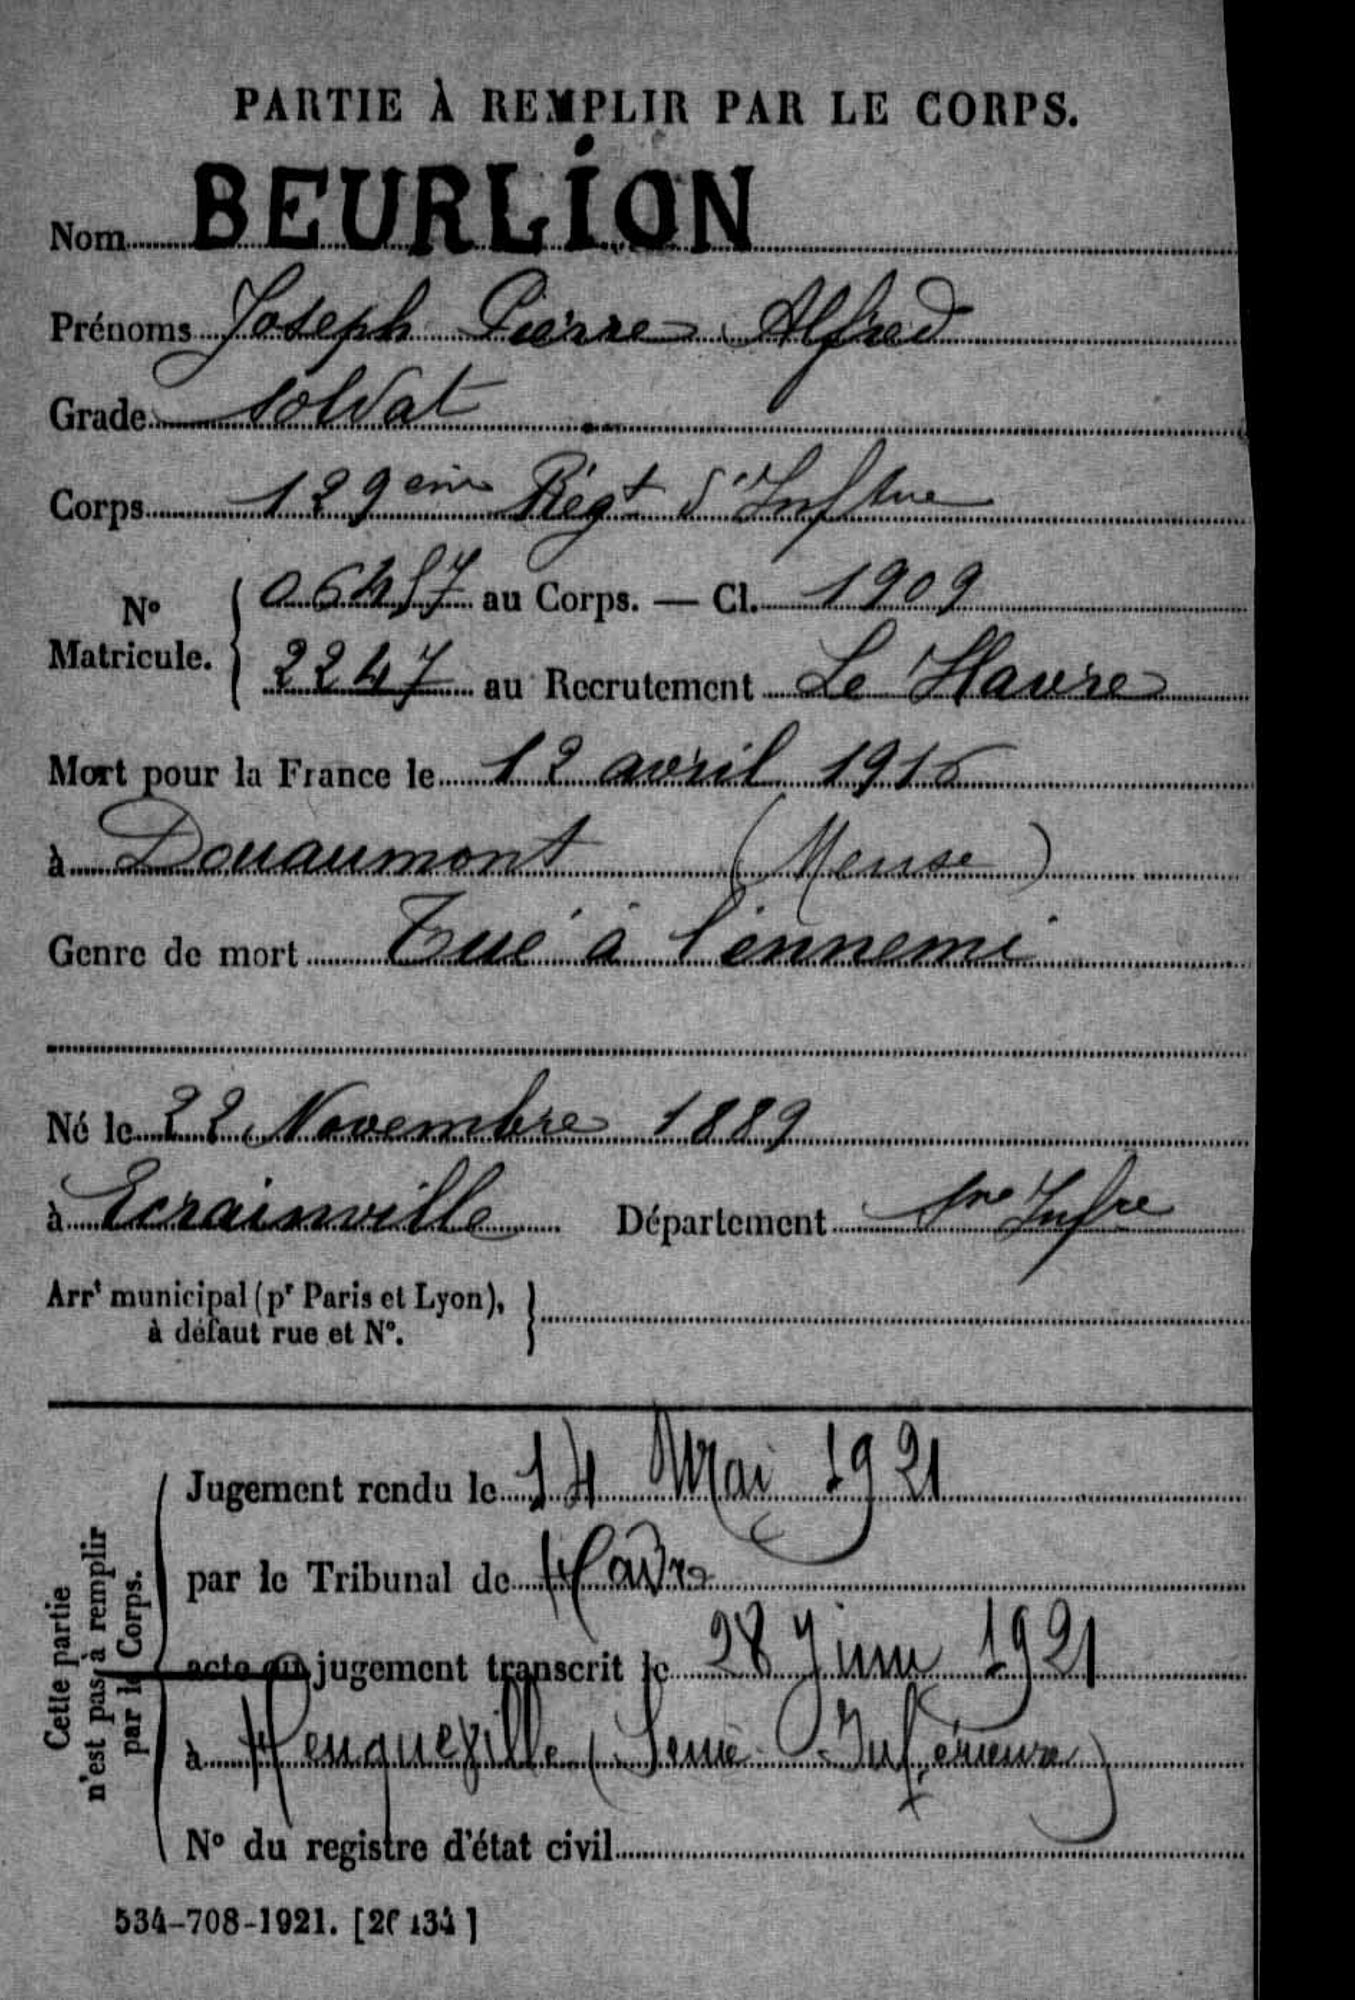 PARTIE À REMPLIR PAR LE CORPS.
Nom BEURLION
Prénoms Joseph Pierre Alfred
Grade soldat
Corps 129eme Régt d'Inftrie
N° Matricule. { 06457 au Corps. — Cl. 1909
2247 au Recrutement Le Havre
Mort pour la France le 12 avril 1916
à Douaumont (Meuse)
Genre de mort Tué à l'ennemi
Né le 22 Novembre 1889
à Ecrainville Département Sne Infre
Arrt municipal (pr Paris et Lyon), }
à défaut rue et N°.
Cette partie
n'est pas à remplir
par le Corps.
Jugement rendu le 14 Mai 1921
par le Tribunal de Havre
acte ou jugement transcrit le 28 Juin 1921
à Henqueville (Seine-Inférieure)
N° du registre d'état civil
534-708-1921.